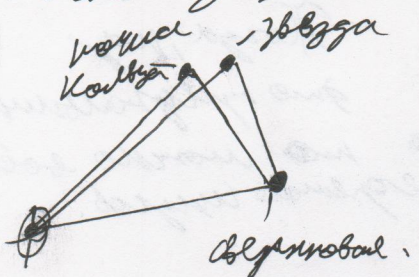 точка
кольца
звезда
сверхновая.